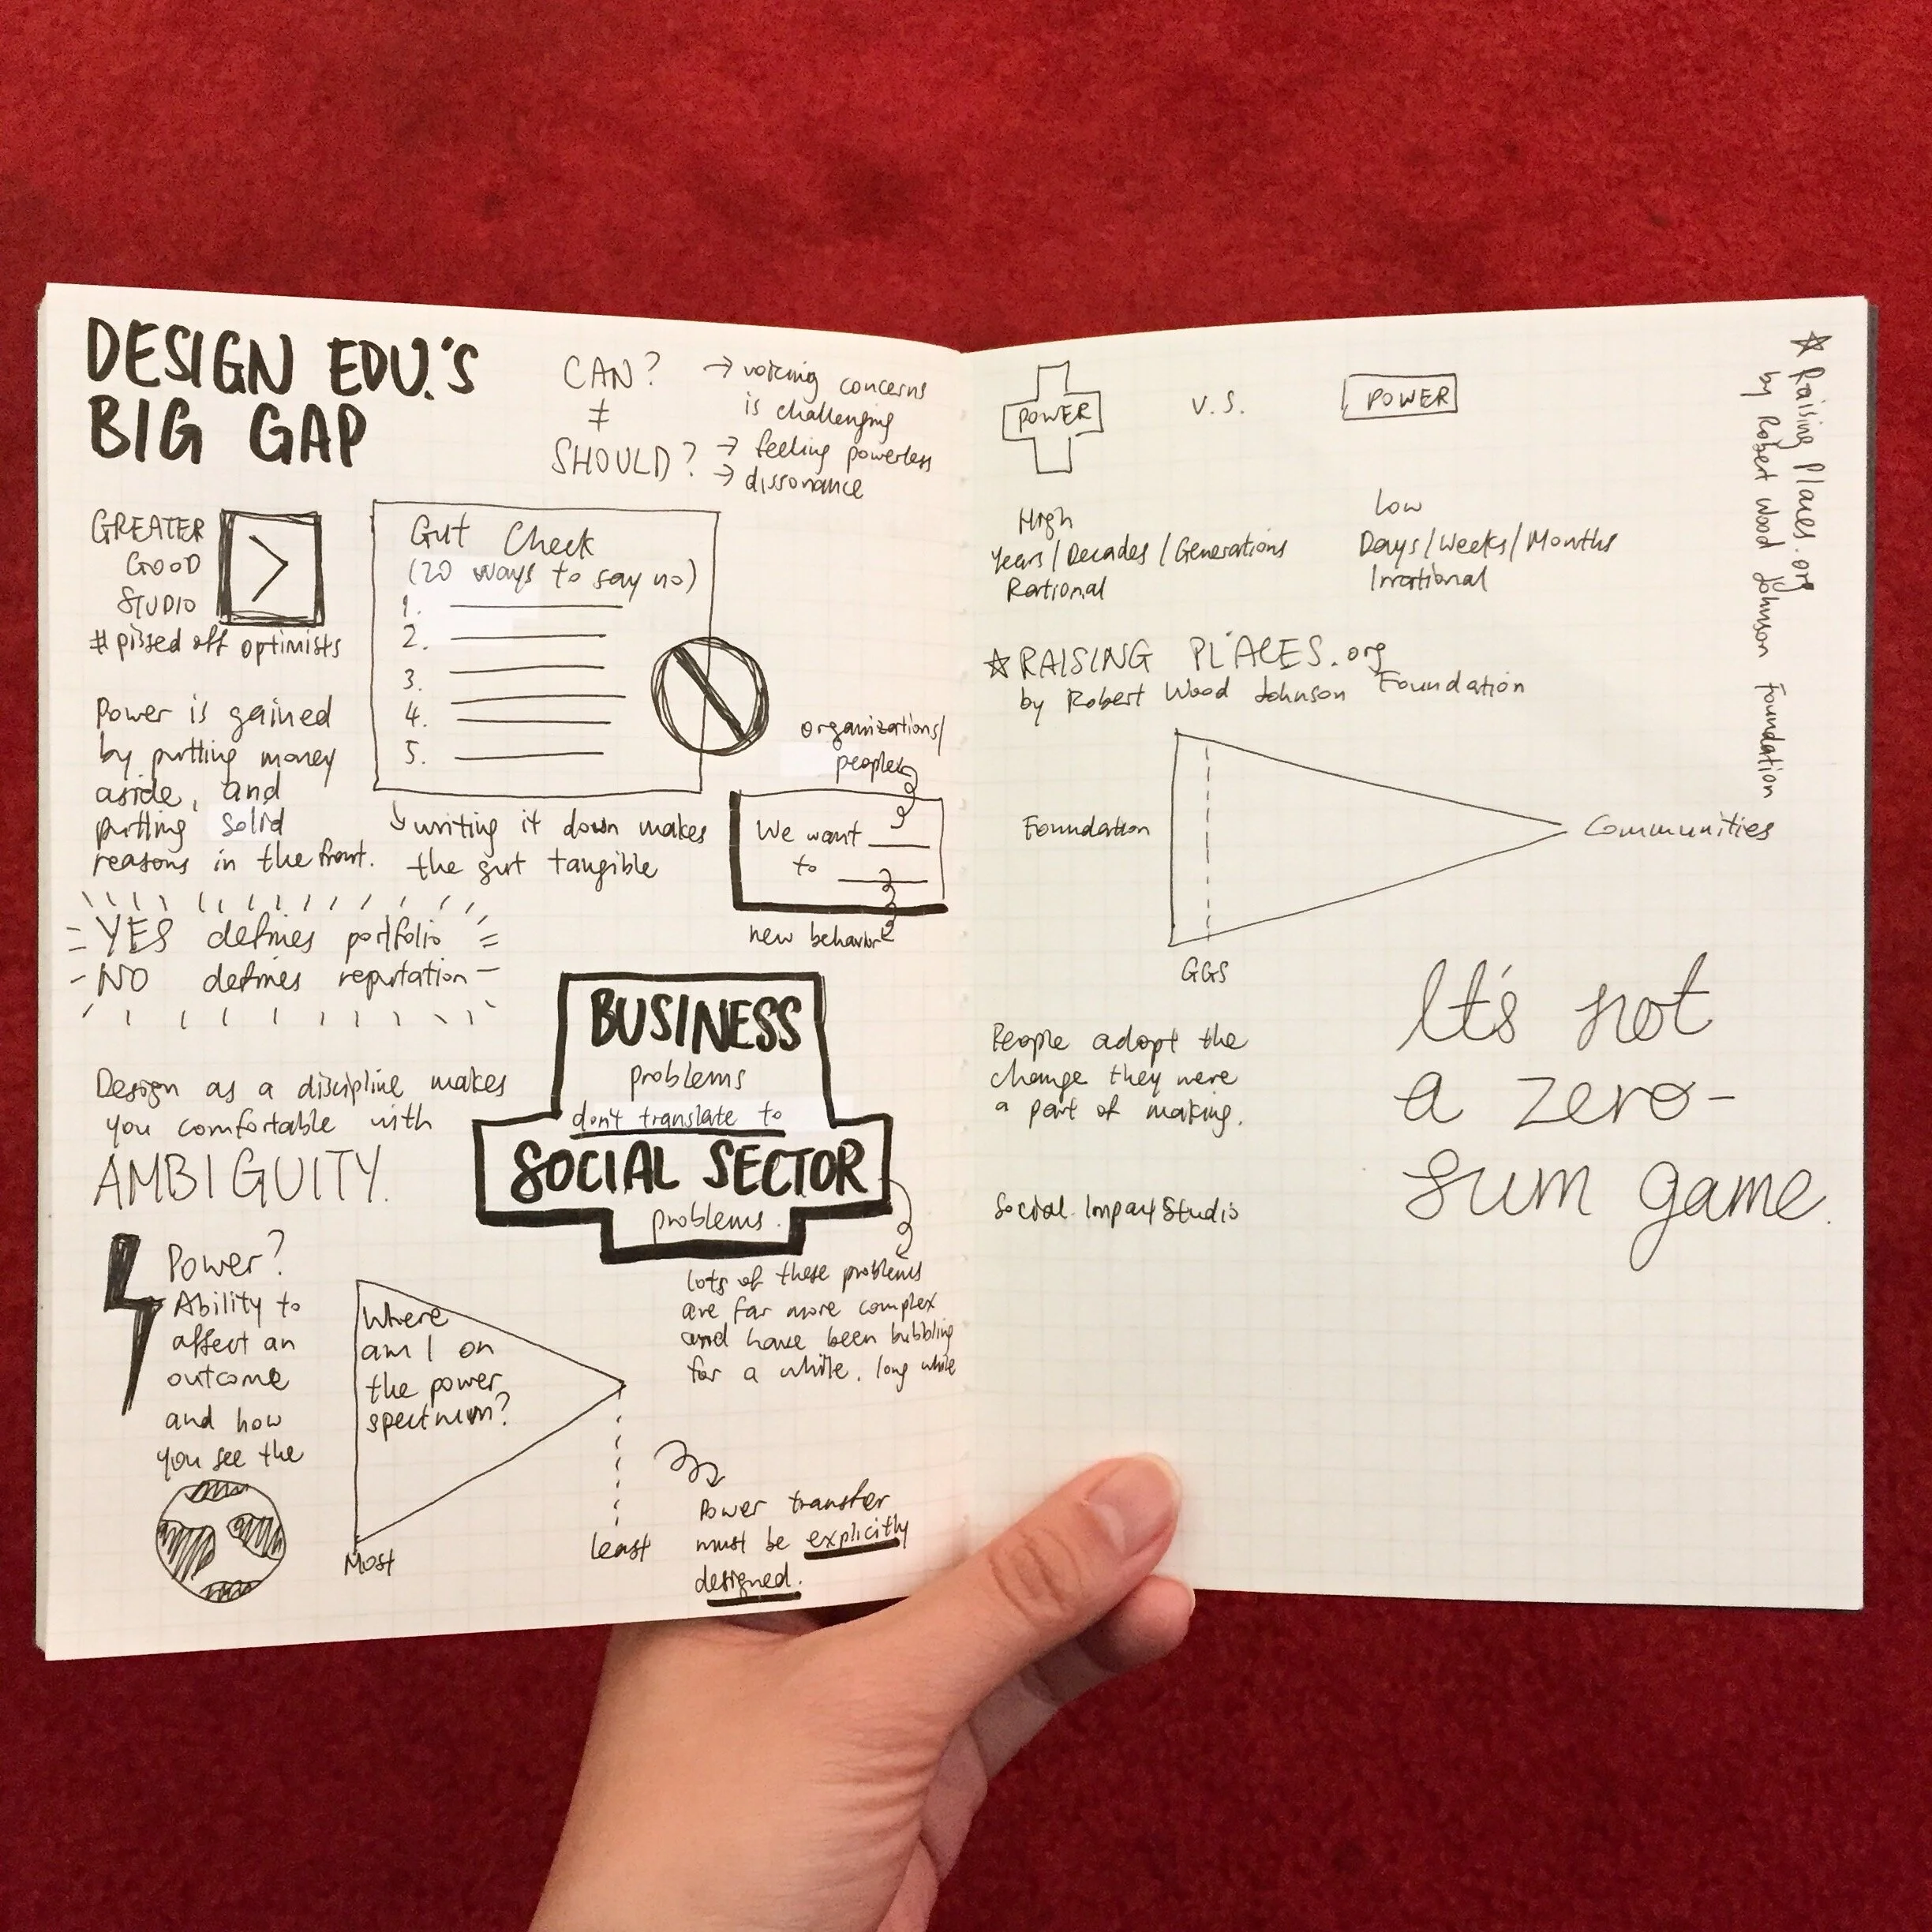 DESIGN EDU.'S
BIG GAP
CAN?
≠
SHOULD?
→ voicing concerns
is challenging
→ feeling powerless
→ dissonance
GREATER
GOOD
STUDIO
>
# pissed off optimists
Gut Check
(20 ways to say no)
1.
2.
3.
4.
5.
writing it down makes
the gut tangible
Power is gained
by putting money
aside, and
putting solid
reasons in the front.
organizations/
people
We want ___
to ___
new behavior
YES defines portfolio
NO defines reputation
Design as a discipline makes
you comfortable with
AMBIGUITY.
BUSINESS
problems
don't translate to
SOCIAL SECTOR
problems.
lots of these problems
are far more complex
and have been bubbling
for a while, long while
Power?
Ability to
affect an
outcome
and how
you see the
Where
am I on
the power
spectrum?
Most
least
Power transfer
must be explicitly
designed.
POWER
V.S.
POWER
High
Years/Decades/Generations
Rational
Low
Days/Weeks/Months
Irrational
☆ RAISING PLACES.org
by Robert Wood Johnson Foundation
Foundation
Communities
GGS
People adopt the
change they were
a part of making.
Social Impact Studio
It's not
a zero-
sum game.
☆ Raising Places.org
by Robert Wood Johnson Foundation